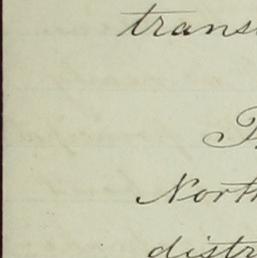 trans
T
North
distr